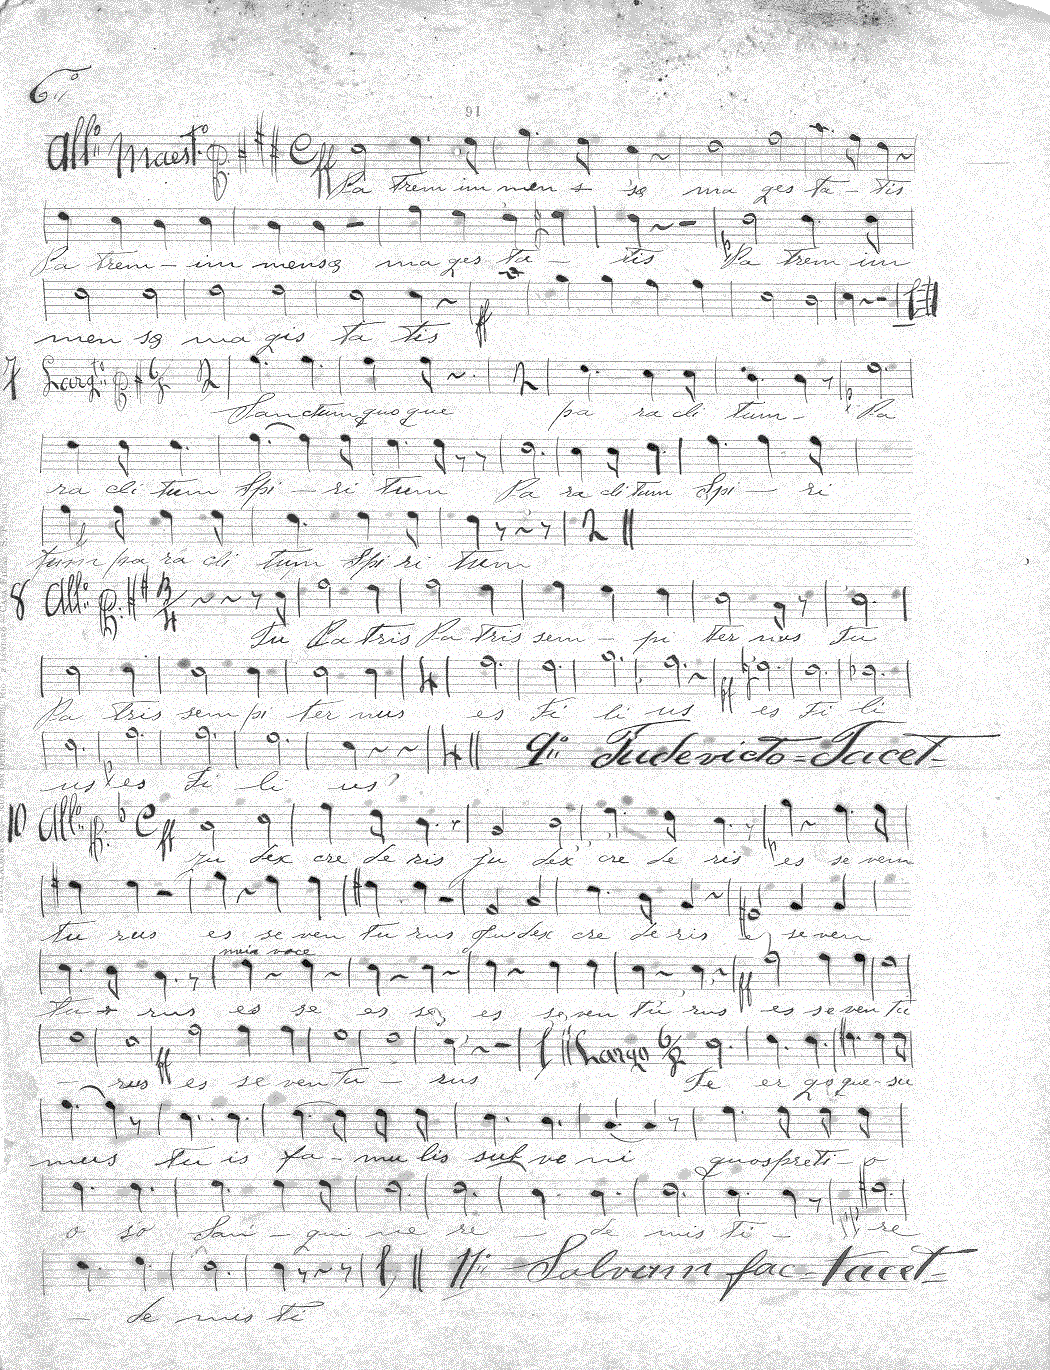 6º
91
Allº Maestº ff
Pa trem im men s sæ ma ges ta - tis
Pa trem - im mensæ ma ges ta - tis Pa trem im
ff
men sæ ma gis ta tis
7 Largtº 6/8 2 2
Sanctum quoque pa ra cli tum - Pa
ra cli tum Spi - ri tum Pa ra cli tum Spi - ri
2
tum pa ra cli tum Spi ri tum
8 Allº 3/4
Tu Patris Pa tris sem - pi ter nus Tu
4 ff
Pa tris sem pi ter nus es Fi li us es Fi li
4 9º Tu devicto = Tacet =
us es Fi li us
10 Allº C ff
Ju dex cre de ris ju dex cre de ris es se ven
tu rus es se ven tu rus Judex cre de ris es se ven
meia voce
ff
tu rus es se es se es se ven tu rus es se ven tu
ff Largo 6/8
- rus es se ven tu - rus Te er go que - su
mus tu is fa - mu lis sub ve ni quos preti - o
o so San - gui ne re - de mis ti - re
11º Salvum fac = tacet =
- de mis ti